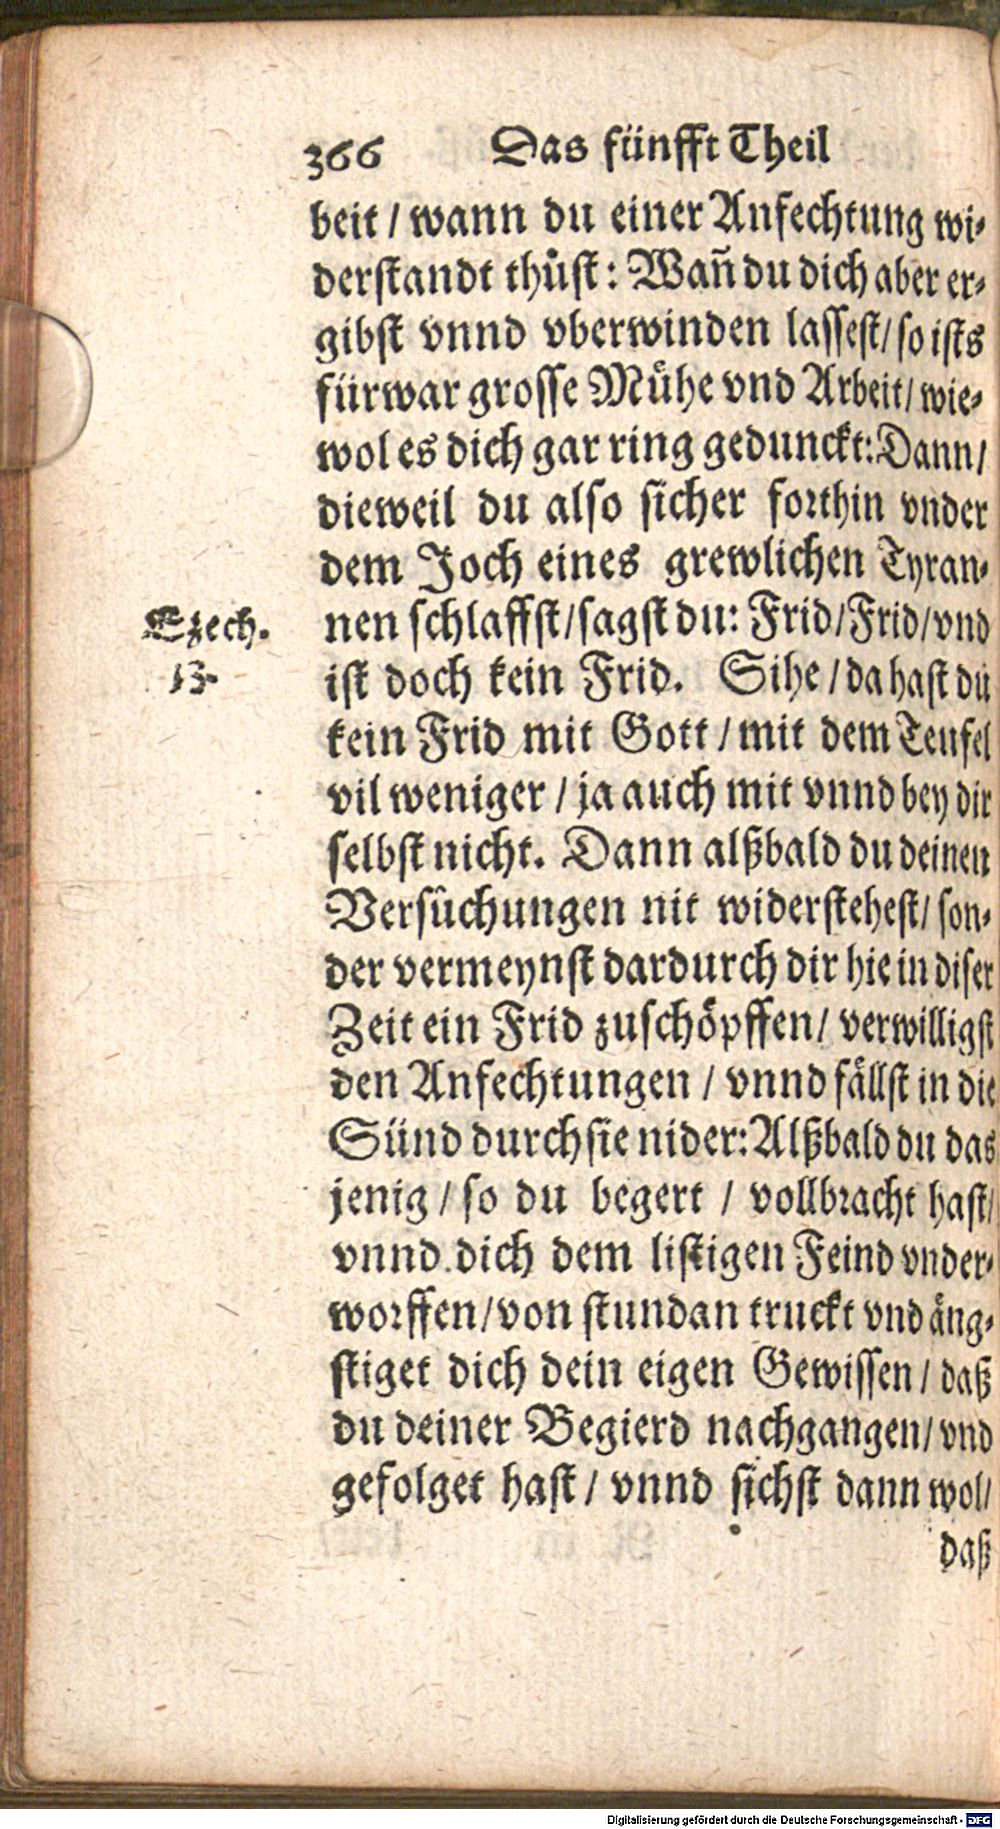 366 Das fünfft Theil
beit / wann du einer Anfechtung wi-
derstandt thůst: Wañ du dich aber er-
gibst vnnd vberwinden lassest/ so ists
fürwar grosse Můhe vnd Arbeit/ wie-
wol es dich gar ring gedunckt: Dann/
dieweil du also sicher forthin vnder
dem Joch eines grewlichen Tyran-
nen schlaffst/ sagst du: Frid/ Frid/ vnd
Ezech.
13.
ist doch kein Frid. Sihe / da hast du
kein Frid mit Gott / mit dem Teufel
vil weniger / ja auch mit vnnd bey dir
selbst nicht. Dann alßbald du deinen
Versůchungen nit widerstehest/ son-
der vermeynst dardurch dir hie in diser
Zeit ein Frid zuschöpffen/ verwilligst
den Anfechtungen / vnnd fällst in die
Sünd durch sie nider: Alßbald du das
jenig / so du begert / vollbracht hast/
vnnd dich dem listigen Feind vnder-
worffen/ von stundan truckt vnd äng-
stiget dich dein eigen Gewissen/ daß
du deiner Begierd nachgangen/ vnd
gefolget hast / vnnd sichst dann wol/
daß
Digitalisierung gefördert durch die Deutsche Forschungsgemeinschaft - DFG